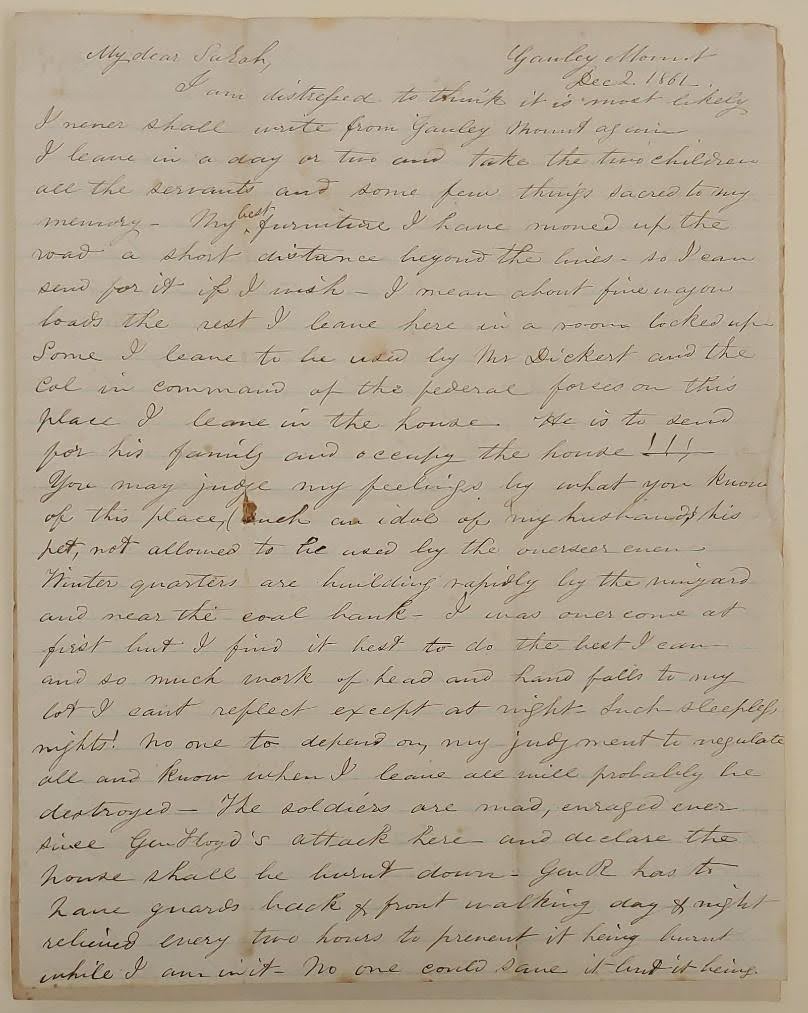 My dear Sarah, Gauley Mount
Dec 2. 1861.
I am distressed to think it is most likely
I never shall write from Gauley Mount again
I leave in a day or two and take the two children
all the servants and some few things sacred to my
memory - My best furniture I have moved up the
road a short distance beyond the lines - so I can
send for it if I wish - I mean about five wagon
loads the rest I leave here in a room locked up -
Some I leave to be used by Mr Dickert and the
Col in command of the federal forces on this
place I leave in the house. He is to send
for his family and occupy the house !!!
You may judge my feelings by what you know
of this place, (such an idol of my husband's his
pet, not allowed to be used by the overseer even
Winter quarters are building rapidly by the vinyard
and near the coal bank - I was overcome at
first but I find it best to do the best I can -
and so much work of head and hand falls to my
lot I cant reflect except at night - Such sleepless
nights! no one to depend on, my judgment to regulate
all and know when I leave all will probably be
destroyed - The soldiers are mad, enraged ever
since Gen Floyd's attack here - and declare the
house shall be burnt down - Gen R has to
have guards back & front walking day & night
relieved every two hours to prevent it being burnt
while I am in it - No one could save it but it being